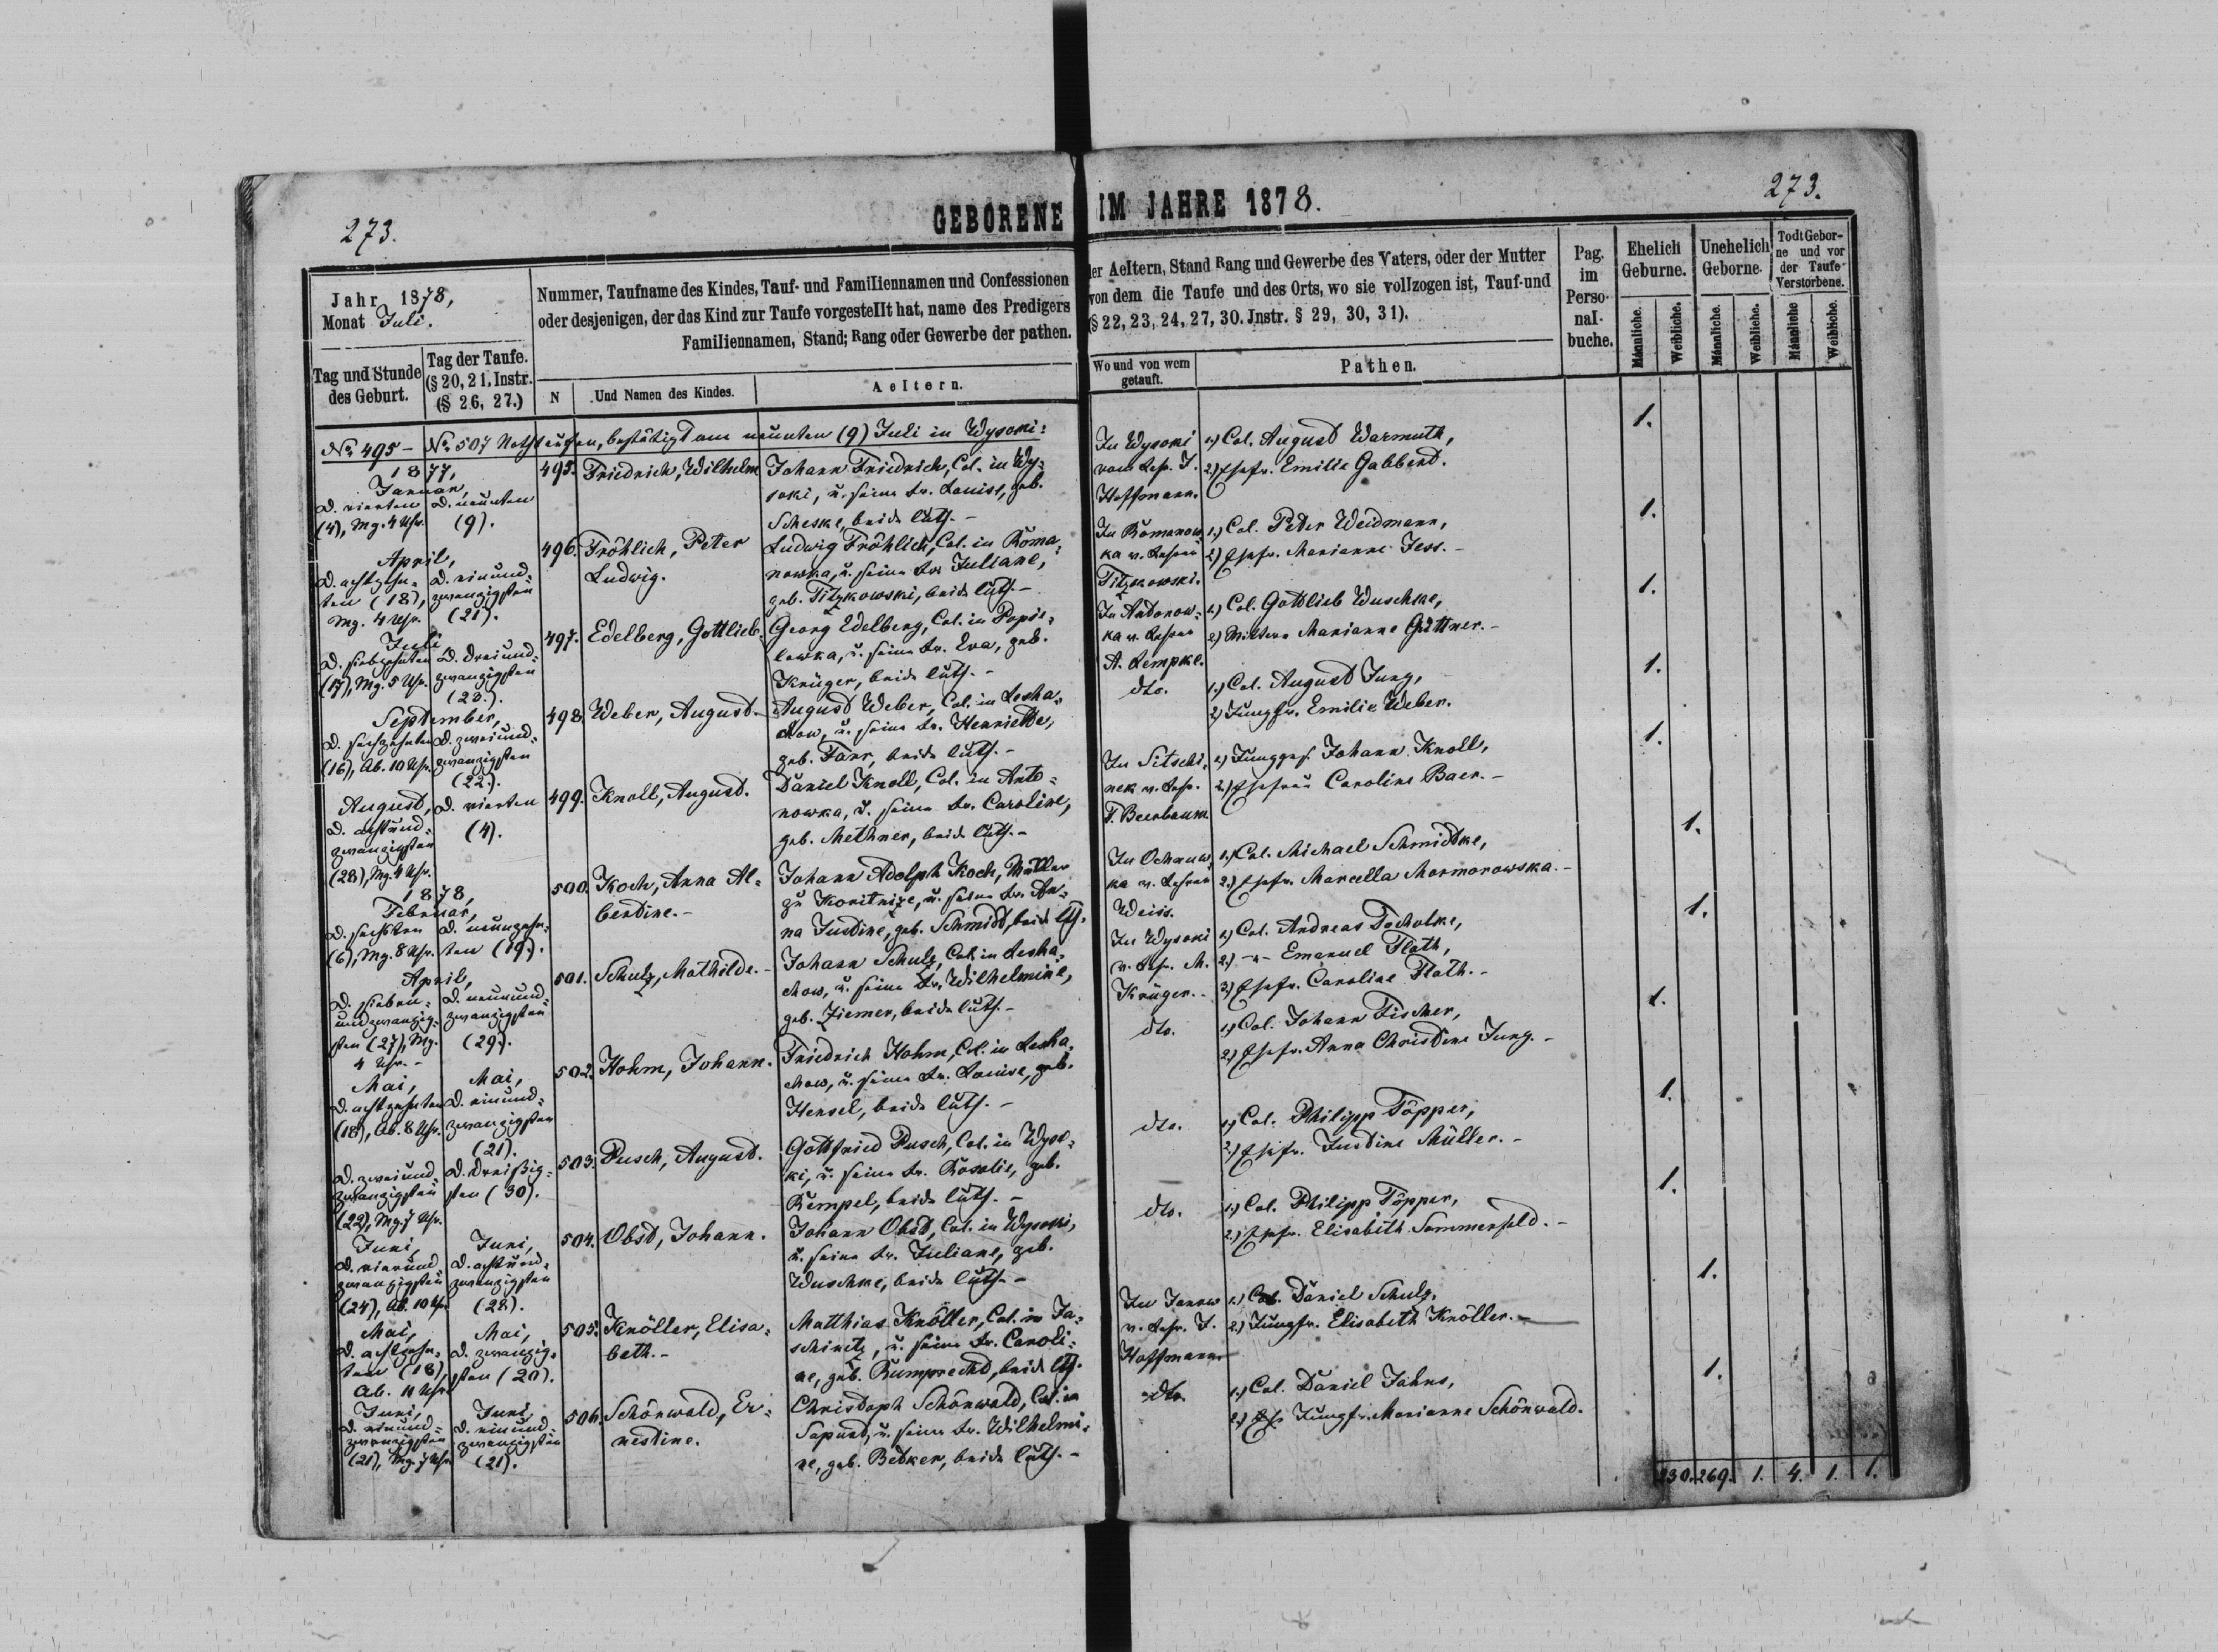 273.
GEBORENE IM JAHRE 1878.
273.
Jahr 1878,
Monat Juli.
Tag und Stunde
des Geburt.
Tag der Taufe.
(§ 20, 21, Instr.
(§ 26, 27.)
Nummer, Taufname des Kindes, Tauf- und Familiennamen und Confessionen
oder desjenigen, der das Kind zur Taufe vorgestellt hat, name des Predigers
Familiennamen, Stand; Rang oder Gewerbe der pathen.
N
Und Namen des Kindes.
Aeltern.
der Aeltern, Stand Rang und Gewerbe des Vaters, oder der Mutter
von dem die Taufe und des Orts, wo sie vollzogen ist, Tauf-und
(§ 22, 23, 24, 27, 30. Jnstr. § 29, 30, 31).
Wo und von wem
getauft.
Pathen.
Pag.
im
Perso-
nal-
buche.
Ehelich
Geburne.
Unehelich
Geborne.
Todt Gebor-
ne und vor
der Taufe
Verstorbene.
Männliche.
Weibliche.
Männliche.
Weibliche.
Männliche
Weibliche.
No 495 – No 507 Nothtaufen, bestätigt am neunten (9) Juli in Wysoki:
1877,
Januar,
D. vierten
(4), Mg. 4 Uhr.
D. neunten
(9).
495. Friedrich, Wilhelm
Johann Friedrich, Col. in Wy-
soki, u. seine Fr. Louise, geb.
Scheske, beide luth. –
In Wysoki
vom Lehr. J.
Hoffmann.
1.) Col. August Warmuth,
2.) Ehefr. Emilie Gabbert.
1.
April,
D. achtzehn-
ten (18),
Mg. 4 Uhr.
D. einund-
zwanzigsten
(21).
496. Fröhlich, Peter
Ludwig.
Ludwig Fröhlich, Col. in Roma-
nowka, u. seine Fr. Juliane,
geb. Titzkowski, beide luth. –
In Romanow-
ka v. Lehrer
Titzkowski.
1.) Col. Peter Weidmann,
2.) Ehefr. Marianne Jess. –
1.
Juli
D. siebzehnten
(17), Mg. 5 Uhr.
D. dreiund-
zwanzigsten
(23).
497. Edelberg, Gottlieb.
Georg Edelberg, Col. in Popie-
lewka, u. seine Fr. Eva, geb.
Krüger, beide luth. –
In Antonow-
ka v. Lehrer
A. Lempke.
1.) Col. Gottlieb Wuschke,
2.) Wittwe Marianne Güttner. –
1.
September,
D. sechzehnten
(16), Ab. 10 Uhr.
D. zweiund-
zwanzigsten
(22).
498. Weber, August.
August Weber, Col. in Lesha-
chow, u. seine Fr. Henriette,
geb. Farr, beide luth. –
dto.
1.) Col. August Jung,
2.) Jungfr. Emilie Weber.
1.
August,
D. achtund-
zwanzigsten
(28), Mg. 4 Uhr.
D. vierten
(4).
499. Knoll, August.
Daniel Knoll, Col. in Anto-
nowka, u. seine Fr. Caroline,
geb. Methner, beide luth. –
In Sitschi-
nek v. Lehr.
F. Beerbaum
1.) Jungges. Johann Knoll,
2.) Ehefrau Caroline Baer. –
1.
1878,
Februar,
D. sechsten
(6), Mg. 8 Uhr.
D. neunzehn-
ten (19).
500. Koch, Anna Al-
bertine. –
Johann Adolph Koch, Müller
zu Koritnize, u. seine Fr. An-
na Justine, geb. Schmidt, beide lth.
In Ochnuw-
ka v. Lehrer
Weiss.
1.) Col. Michael Schmidtke,
2.) Ehefr. Marcella Mormorowska. –
1.
April,
D. sieben-
undzwanzig-
sten (27), Mg.
4 Uhr. –
D. neunund-
zwanzigsten
(29).
501. Schulz, Mathilde. –
Johann Schulz, Col. in Lesha-
chow, u. seine Fr. Wilhelmine,
geb. Ziemer, beide luth. –
In Wysoki
v. Lehr. M.
Krüger. –
1.) Col. Andreas Tscholke,
2.) –"– Emanuel Flath,
3.) Ehefr. Caroline Flath. –
1.
Mai,
D. achtzehnten
(18), Ab. 8 Uhr.
Mai,
D. einund-
zwanzigsten
(21).
502. Hohm, Johann.
Friedrich Hohm, Col. in Lesha-
chow, u. seine Fr. Louise, geb.
Hensel, beide luth. –
dto.
1.) Col. Johann Fischer,
2.) Ehefr. Anna Christine Jung. –
1.
D. zweiund-
zwanzigsten
(22), Mg. 7 Uhr.
D. dreißig-
sten (30).
503. Pusch, August.
Gottfried Pusch, Col. in Wyso-
ki, u. seine Fr. Rosalie, geb.
Rempel, beide luth. –
dto.
1.) Col. Philipp Töpper,
2.) Ehefr. Justine Müller. –
1.
Juni,
D. vierund-
zwanzigsten
(24), Ab. 10 Uhr
Juni,
D. achtund-
zwanzigsten
(28).
504. Obst, Johann.
Johann Obst, Col. in Wysoki,
u. seine Fr. Juliane, geb.
Wuschke, beide luth. –
dto.
1.) Col. Philipp Töpper,
2.) Ehefr. Elisabeth Sommerfeld. –
1.
Mai,
D. achtzehn-
ten (18),
Ab. 11 Uhr
Mai,
D. zwanzig-
sten (20).
505. Knöller, Elisa-
beth. –
Matthias Knöller, Col. in Ja-
schinetz, u. seine Fr. Caroli-
ne, geb. Rumprecht, beide lth.
In Janow
v. Lehr. J.
Hoffmann
1.) Col. Daniel Schulz,
2.) Jungfr. Elisabeth Knöller. –
1.
Juni,
D. einund-
zwanzigsten
(21), Mg. 7 Uhr
Juni,
D. einund-
zwanzigsten
(21).
506. Schönwald, Er-
nestine.
Christoph Schönwald, Col. in
Sapust, u. seine Fr. Wilhelmi-
ne, geb. Betker, beide luth. –
dto.
1.) Col. Daniel Jahns,
2.) Jungfr. Marianne Schönwald.
1.
230. 269. 1. 4. 1. 1.